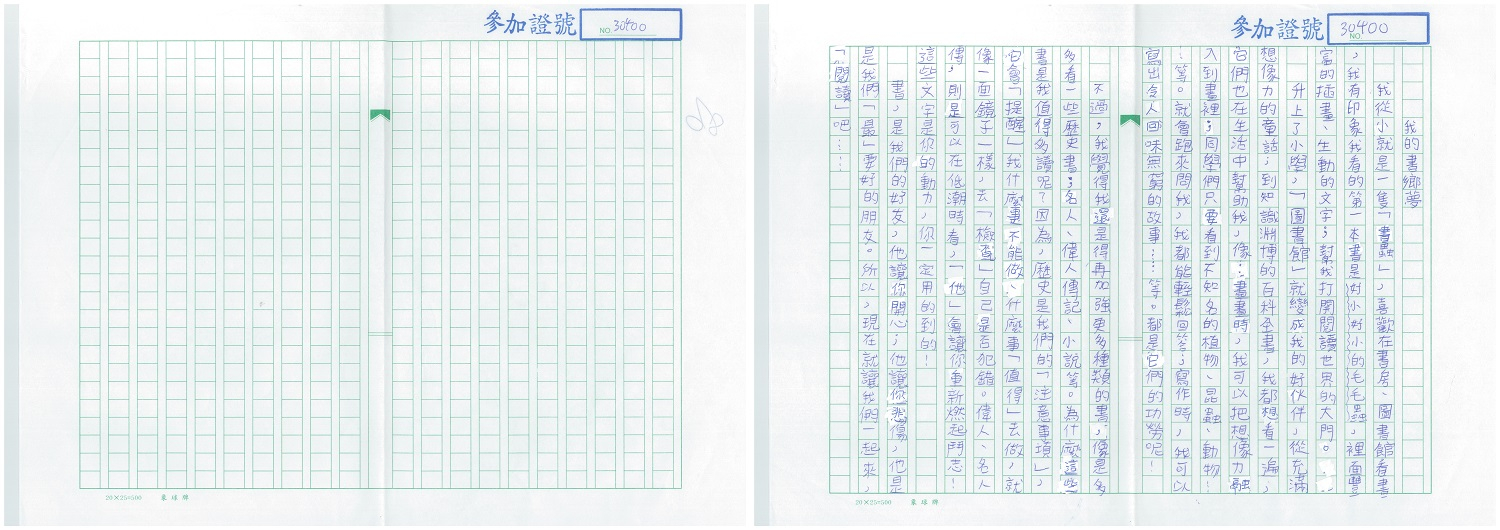 參加證號
NO. 30400
20×25=500 象球牌
參加證號
NO. 30400
我的書鄉夢
我從小就是一隻「書蟲」，喜歡在書房、圖書館看書
，我有印象我看的第一本書是好小好小的毛毛蟲，裡面豐
富的插畫、生動的文字；幫我打開閱讀世界的大門。
升上了小學，「圖書館」就變成我的好伙伴，從充滿
想像力的童話；到知識淵博的百科全書，我都想看一遍，
它們也在生活中幫助我，像：畫畫時，我可以把想像力融
入到畫裡；同學們只要看到不知名的植物、昆蟲、動物…
…等。就會跑來問我，我都能輕鬆回答；寫作時，我可以
寫出令人回味無窮的故事……等。都是它們的功勞呢！
不過，我覺得我還是得再加強更多種類的書，像是多
多看一些歷史書；名人、偉人傳記、小說等。為什麼這些
書是我值得多讀呢？因為，歷史是我們的「注意事項」，
它會「提醒」我什麼事不能做、什麼事「值得」去做，就
像一面鏡子一樣，去「檢查」自己是否犯錯。偉人、名人
傳，則是可以在低潮時看，「他」會讓你重新燃起鬥志！
這些文字是你的動力，你一定用的到的！
書，是我們的好友，他讓你開心；他讓你悲傷，他是
是我們「最」要好的朋友。所以，現在就讓我們一起來，
「閱讀」吧……
20×25=500 象球牌